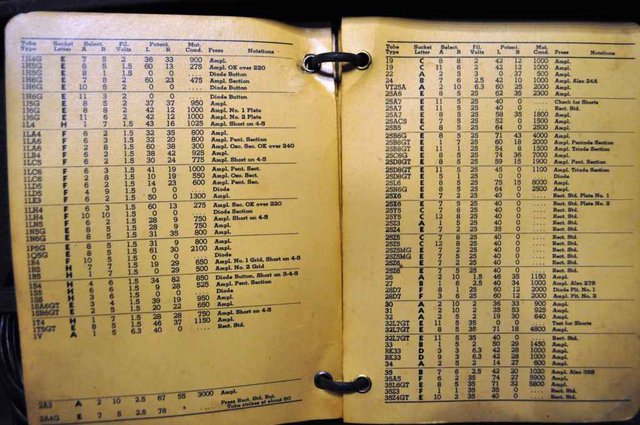 Tube Type Socket Letter Select. A B Fil. Volts Potent. L R Mut. Cond. Press Notations
1H4G E 7 5 2 36 33 900 Ampl.
1H5G E 8 5 1.5 60 13 275 Ampl. OK over 220
1H5G E 8 1 1.5 0 0 Diode Button
1H6G E 7 8 2 60 23 475 Ampl. Section
1H6G E 10 8 2 0 0 .... Diode Button
1H6G E 11 3 2 0 0 .... Diode Button
1J5G E 8 5 2 37 37 950 Ampl.
1J6G E 6 8 2 42 12 1000 Ampl. No. 1 Plate
1J6G E 11 6 2 42 12 1000 Ampl. No. 2 Plate
1L4 H 1 7 1.5 43 16 1025 Ampl. Short on 4-5
1LA4 F 6 2 1.5 32 35 800 Ampl.
1LA6 F 6 3 1.5 32 20 800 Ampl. Pent. Section
1LA6 F 2 8 1.5 60 38 300 Ampl. Osc. Sec. OK over 240
1LB4 F 6 5 1.5 38 42 925 Ampl.
1LC5 F 6 2 1.5 30 24 775 Ampl. Short on 4-5
1LC6 F 6 3 1.5 41 19 1000 Ampl. Pent. Sect.
1LC6 F 2 8 1.5 10 19 550 Ampl. Osc. Sect.
1LD5 F 6 2 1.5 14 23 600 Ampl. Pent. Sec.
1LD5 F 4 9 1.5 0 0 Diode
1LE3 F 6 2 1.5 50 0 1300 Ampl.
1LH4 F 2 3 1.5 60 13 275 Ampl. Sec. OK over 220
1LH4 F 10 10 1.5 0 0 Diode Section
1LN5 F 6 2 1.5 28 9 750 Ampl. Short on 4-5
1N5G E 8 5 1.5 28 9 750 Ampl.
1N6G E 8 5 1.5 31 35 800 Ampl.
1P5G E 8 5 1.5 31 9 800 Ampl.
1Q5G E 8 5 1.5 61 30 2100 Ampl.
1R4 H 10 5 1.5 0 0 Diode
1R5 H 7 7 1.5 19 29 650 Ampl. No. 1 Grid, Short on 4-5
1R5 H 1 7 1.5 0 29 500 Ampl. No. 2 Grid
1S4 H 4 6 1.5 34 82 850 Ampl.
1S5 H 6 2 1.5 9 28 525 Ampl. Pent. Section
1S5 H 3 8 1.5 0 0 Diode
1SA6GT E 3 4 1.5 39 19 950 Ampl.
1SB6GT E 2 5 1.5 20 22 650 Ampl.
1T4 H 1 7 1.5 28 28 750 Ampl. Short on 4-5
1T5GT E 8 5 1.5 46 37 1150 Ampl.
1V A 1 5 6.3 40 0 .... Rect. Std.
2A3 A 2 10 2.5 67 55 3000 Ampl.
2A4G E 7 5 2.5 76 Press Rect. Std. But. Tube strikes at about 60
Tube Type Socket Letter Select. A B Fil. Volts Potent. L R Mut. Cond. Press Notations
19 C 8 8 2 42 12 1000 Ampl.
19 C 11 6 2 42 12 1000 Ampl.
22 A 2 5 3 0 37 500 Ampl.
24 B 7 6 2.5 42 10 1000 Ampl. Also 24A
VT25A A 2 10 6.3 60 25 2000 Ampl.
25A6 E 8 5 25 62 35 2300 Ampl.
25A7 E 11 5 25 40 0 .... Check for Shorts
25A7 E 11 5 25 40 0 .... Rect. Std.
25A7 E 8 5 25 58 35 1800 Ampl.
25AC5 E 7 5 25 52 0 1500 Ampl.
25B5 C 8 5 25 64 0 2500 Ampl.
25B6G E 8 5 25 71 43 4000 Ampl.
25B8GT E 1 7 25 60 18 2000 Ampl. Pentode Section
25B8GT E 11 1 25 54 8 1500 Ampl. Triode Section
25C6G E 8 5 25 74 36 7000 Ampl.
25D8GT E 8 5 25 59 15 1900 Ampl. Pent. Section
25D8GT E 11 5 25 45 0 1100 Ampl. Triode Section
25D8GT E 5 1 25 0 0 .... Diode
25L6 E 8 5 25 75 15 8000 Ampl.
25N6G E 8 5 25 64 0 2500 Ampl.
25X6 E 7 2 25 40 0 .... Rect. Std. Plate No. 1
25X6 E 7 5 25 40 0 .... Rect. Std. Plate No. 2
25Y5 C 7 8 25 40 0 .... Rect. Std.
25Y5 C 12 8 25 40 0 .... Rect. Std.
25Z3 A 2 5 25 40 0 .... Rect. Std.
25Z4 E 7 2 25 35 0 .... Rect. Std.
25Z5 C 7 8 25 40 0 .... Rect. Std.
25Z5 C 12 8 25 40 0 .... Rect. Std.
25Z5MG E 7 2 25 40 0 .... Rect. Std.
25Z5MG E 7 5 25 40 0 .... Rect. Std.
25Z6 E 7 2 25 40 0 .... Rect. Std.
25Z6 E 7 5 25 40 0 .... Rect. Std.
26 A 2 10 1.5 45 35 1150 Ampl.
27 B 1 6 2.5 40 34 1000 Ampl. Also 27S
28D7 F 8 1 25 60 12 2000 Ampl. Plt. No. 1
28D7 F 3 6 25 60 12 2000 Ampl. Plt. No. 2
30 A 2 10 2 36 33 900 Ampl.
31 A 2 10 2 35 53 925 Ampl.
32 A 2 5 2 19 30 640 Ampl.
32L7GT E 11 5 35 0 0 .... Test for Shorts
32L7GT E 8 5 35 71 18 4800 Ampl.
32L7GT E 11 5 35 40 0 .... Rect. Std.
33 B 1 5 2 50 29 1450 Ampl.
RK33 D 3 3 6.3 42 28 1000 Ampl.
RK33 D 9 3 6.3 42 28 1000 Ampl.
34 A 2 5 2 14 27 600 Ampl.
35 B 7 6 2.5 42 20 1020 Ampl. Also 35S
35A5 F 6 2 35 74 27 5900 Ampl.
35L6GT E 8 5 35 71 32 5800 Ampl.
35Z3 F 1 1 35 35 0 .... Rect. Std.
35Z4GT E 10 2 35 40 0 .... Rect. Std.